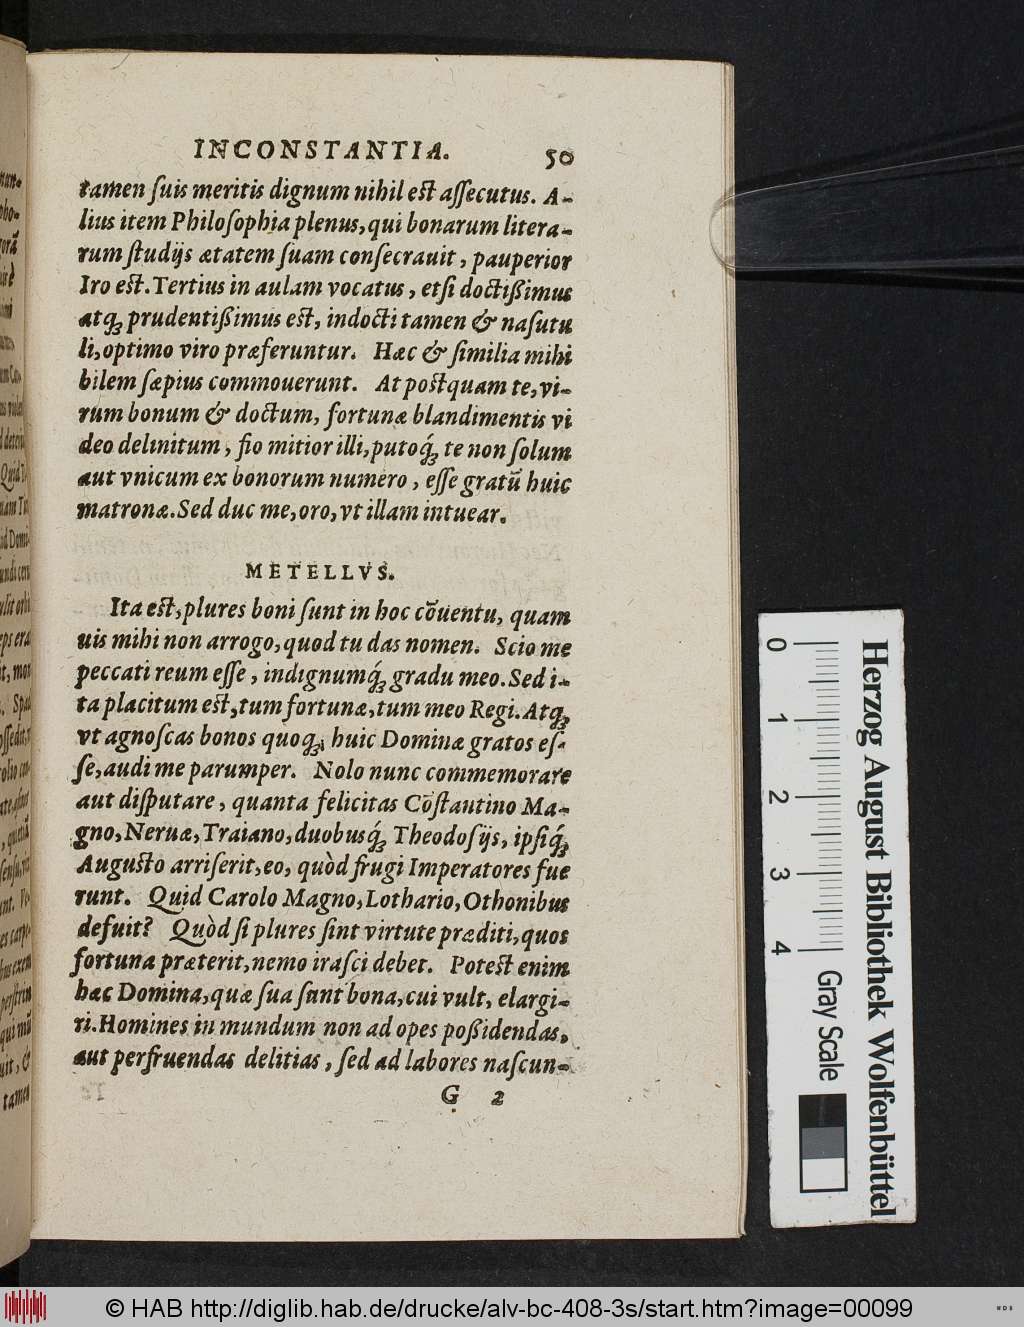 INCONSTANTIA. 50
tamen ſuis meritis dignum nihil est aſſecutus. A-
lius item Philoſophia plenus, qui bonarum litera-
rum ſtudijs ætatem ſuam conſecrauit, pauperior
Iro est. Tertius in aulam vocatus, etſi doctißimus
atq́ꝫ prudentißimus est, indocti tamen & naſutu
li, optimo viro præferuntur. Hæc & ſimilia mihi
bilem ſæpius commouerunt. At postquam te, vi-
rum bonum & doctum, fortunæ blandimentis vi
deo delinitum, fio mitior illi, putoq́ꝫ te non ſolum
aut vnicum ex bonorum numero, eſſe gratũ huic
matronæ. Sed duc me, oro, vt illam intuear.
METELLVS.
Ita est, plures boni ſunt in hoc cõuentu, quam
uis mihi non arrogo, quod tu das nomen. Scio me
peccati reum eſſe, indignumq́ꝫ gradu meo. Sed i-
ta placitum est, tum fortunæ, tum meo Regi. Atqꝫ
vt agnoſcas bonos quoqꝫ huic Dominæ gratos eſ-
ſe, audi me parumper. Nolo nunc commemorare
aut diſputare, quanta felicitas Cõſtantino Ma-
gno, Neruæ, Traiano, duobusq́ꝫ Theodoſijs, ipſiq́ꝫ
Augusto arriſerit, eo, quòd frugi Imperatores fue
runt. Quid Carolo Magno, Lothario, Othonibus
defuit? Quòd ſi plures ſint virtute præditi, quos
fortuna præterit, nemo iraſci debet. Potest enim
hæc Domina, quæ ſua ſunt bona, cui vult, elargi-
ri. Homines in mundum non ad opes poßidendas,
aut perfruendas delitias, ſed ad labores naſcun-
G 2
0 1 2 3 4
Gray Scale
Herzog August Bibliothek Wolfenbüttel
© HAB http://diglib.hab.de/drucke/alv-bc-408-3s/start.htm?image=00099